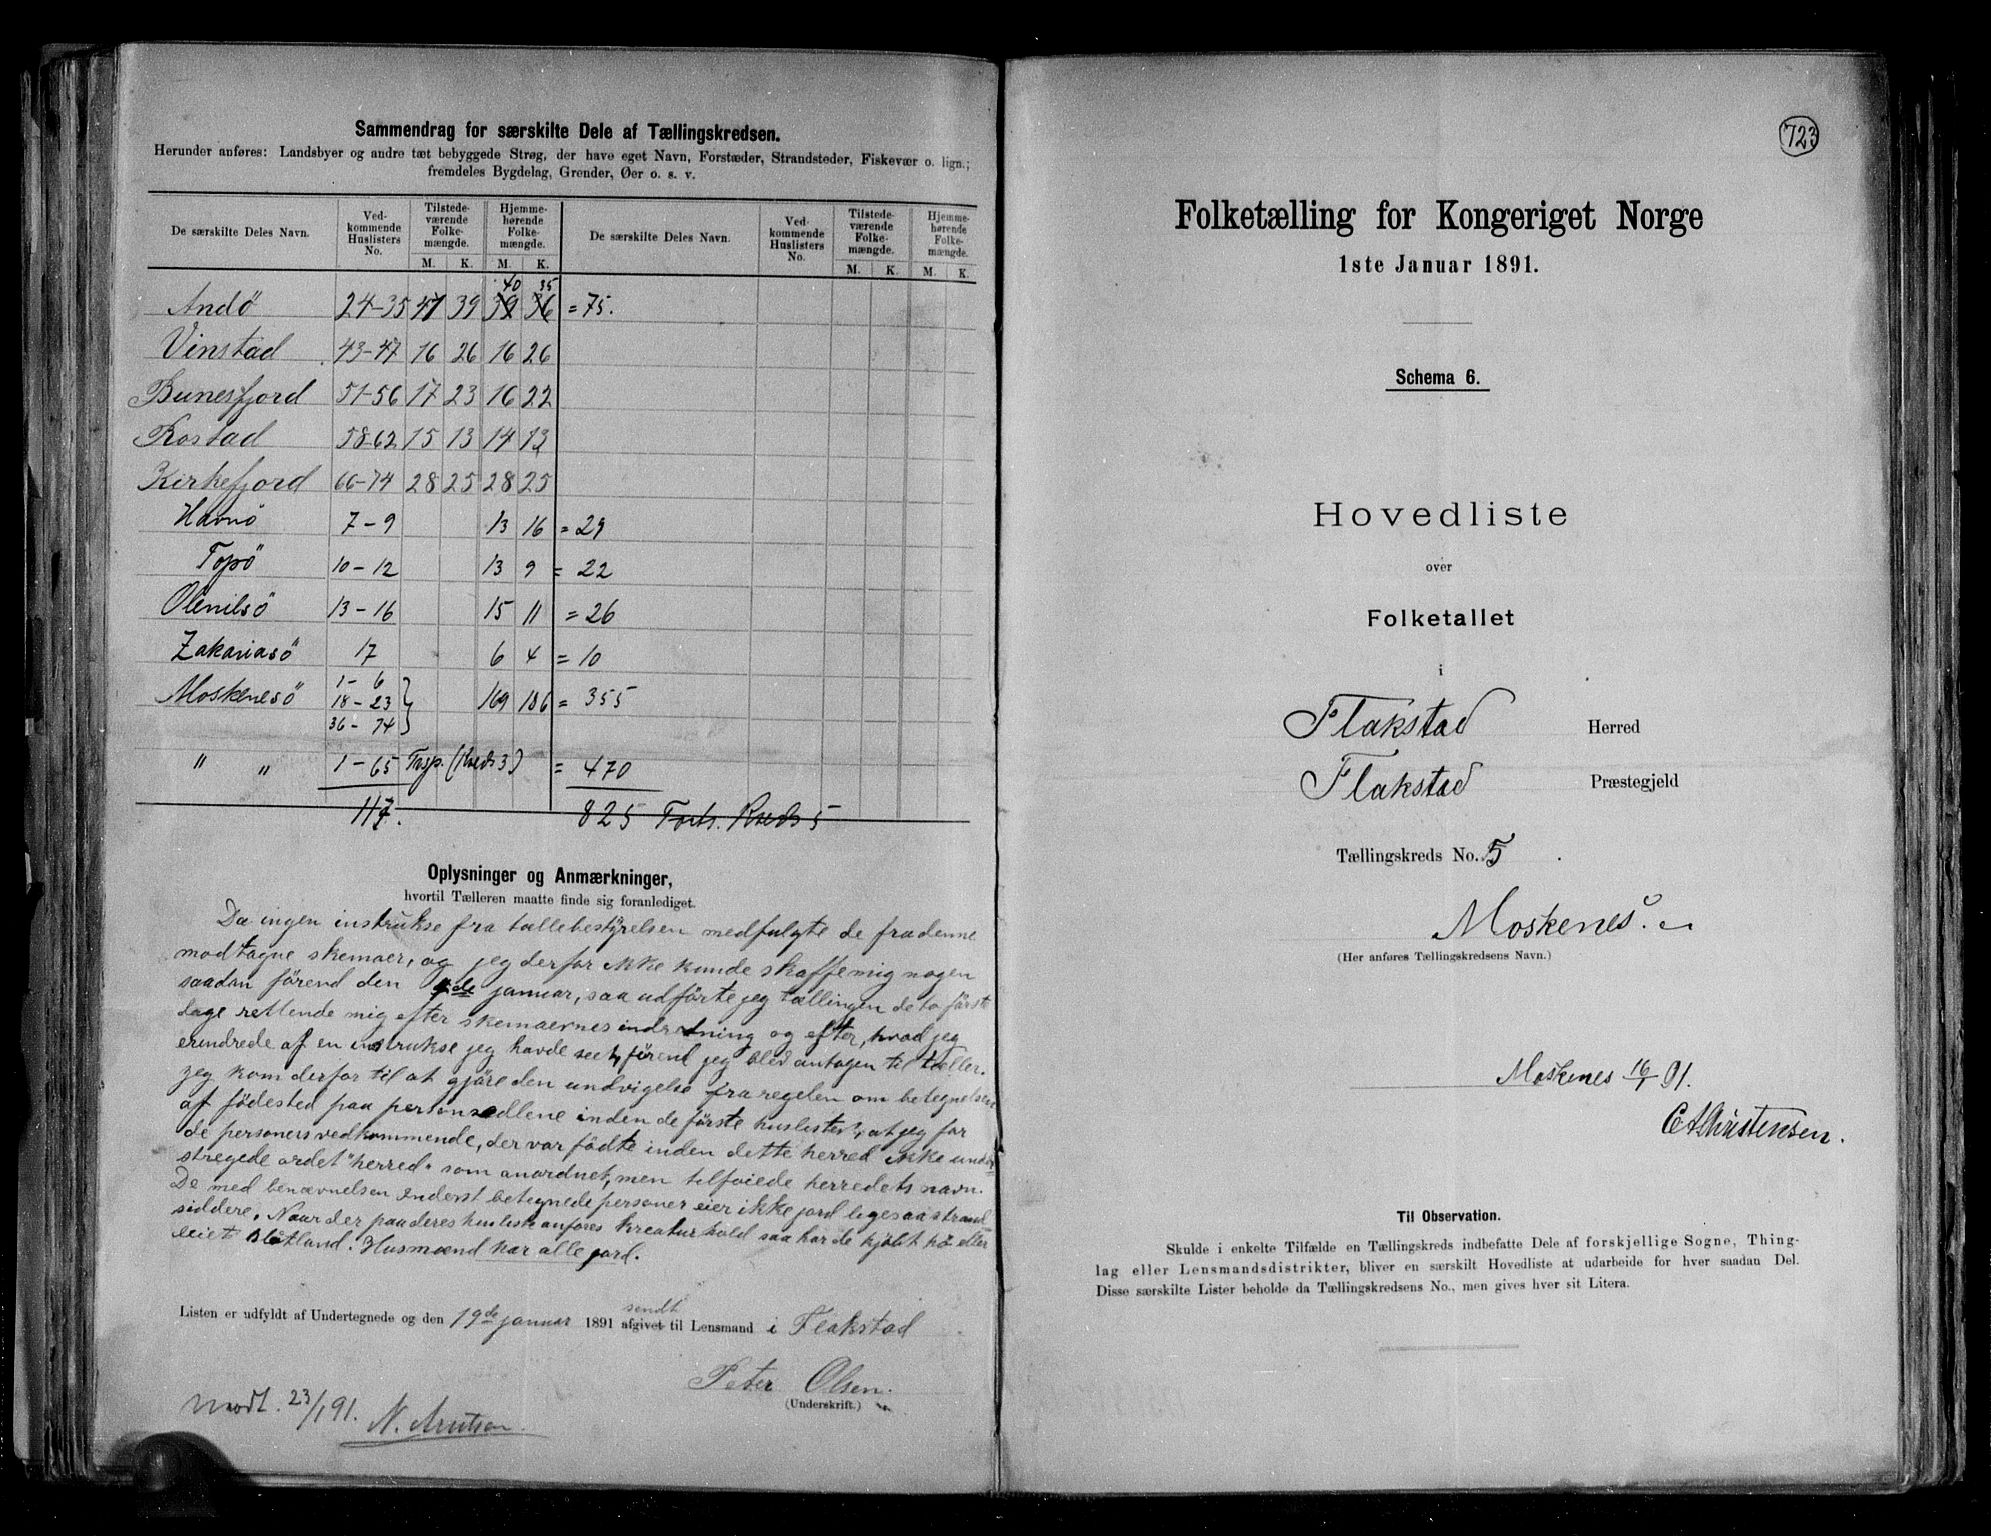 Sammendrag for særskilte Dele af Tællingskredsen.
Herunder anføres: Landsbyer og andre tæt bebyggede Strøg, der have eget Navn, Forstæder, Strandsteder, Fiskevær o. lign.;
fremdeles Bygdelag, Grender, Øer o. s. v.
De særskilte Deles Navn. Ved-kommende Huslisters No. Tilstede-værende Folke-mængde. Hjemme-hørende Folke-mængde. De særskilte Deles Navn. Ved-kommende Huslisters No. Tilstede-værende Folke-mængde. Hjemme-hørende Folke-mængde.
M. K. M. K. M. K. M. K.
40 35
Andö 24-35 47 39 39 36 = 75.
Vinstad 43-47 16 26 16 26
Bunesfjord 51-56 17 23 16 22
Rostad 58-62 15 13 14 13
Kirkefjord 66-74 28 25 28 25
Havnö 7-9 13 16 = 29
Topö 10-12 13 9 = 22
Olenilsö 13-16 15 11 = 26
Zakariasö 17 6 4 = 10
1-6
Moskenesö 18-23 169 186 = 355
36-74
" " 1-65 Tersp. (Kreds 3) = 470
117. 825 Forts. Kreds 5
Oplysninger og Anmærkninger,
hvortil Tælleren maatte finde sig foranlediget.
Da ingen instrukse fra tællebestyrelsen medfulgte de fra denne
modtagne skemaer, og jeg derfor ikke kunde skaffe mig nogen
saadan förend den de januar, saa udförte jeg tællingen de to förste
dage rettende mig efter skemaernes indretning og efter, hvad jeg
erindrede af en instrukse jeg havde seet, förend jeg blev antagen til tæller.
Jeg kom derfor til at gjöre den undvigelse fra regelen om betegnelsen
af födested paa personsedlene inden de förste huslister, at jeg for
de personers vedkommende, der var födte inden dette herred ikke under
stregede ordet "herred" som anordnet, men tilföiede herredets navn.
De med benævnelsen Inderst betegnede personer eier ikke jord ligesaa strand
siddere. Naar der paa deres husliste anföres kreaturhold saa har de kjöbt hö eller
leiet slåtland. Husmænd har alle jord.
Listen er udfyldt af Undertegnede og den 19de januar 1891 afgivet sendt til Lensmand i Flakstad
Peter Olsen.
(Underskrift.)
Modt. 23/1 91.
N. Arntsen
723
Folketælling for Kongeriget Norge
1ste Januar 1891.
Schema 6.
Hovedliste
over
Folketallet
i
Flakstad Herred
Flakstad Præstegjeld
Tællingskreds No. 5
Moskenes.
(Her anføres Tællingskredsens Navn.)
Moskenes 16/1 91.
C A Christensen.
Til Observation.
Skulde i enkelte Tilfælde en Tællingskreds indbefatte Dele af forskjellige Sogne, Thing-
lag eller Lensmandsdistrikter, bliver en særskilt Hovedliste at udarbeide for hver saadan Del.
Disse særskilte Lister beholde da Tællingskredsens No., men gives hver sit Litera.